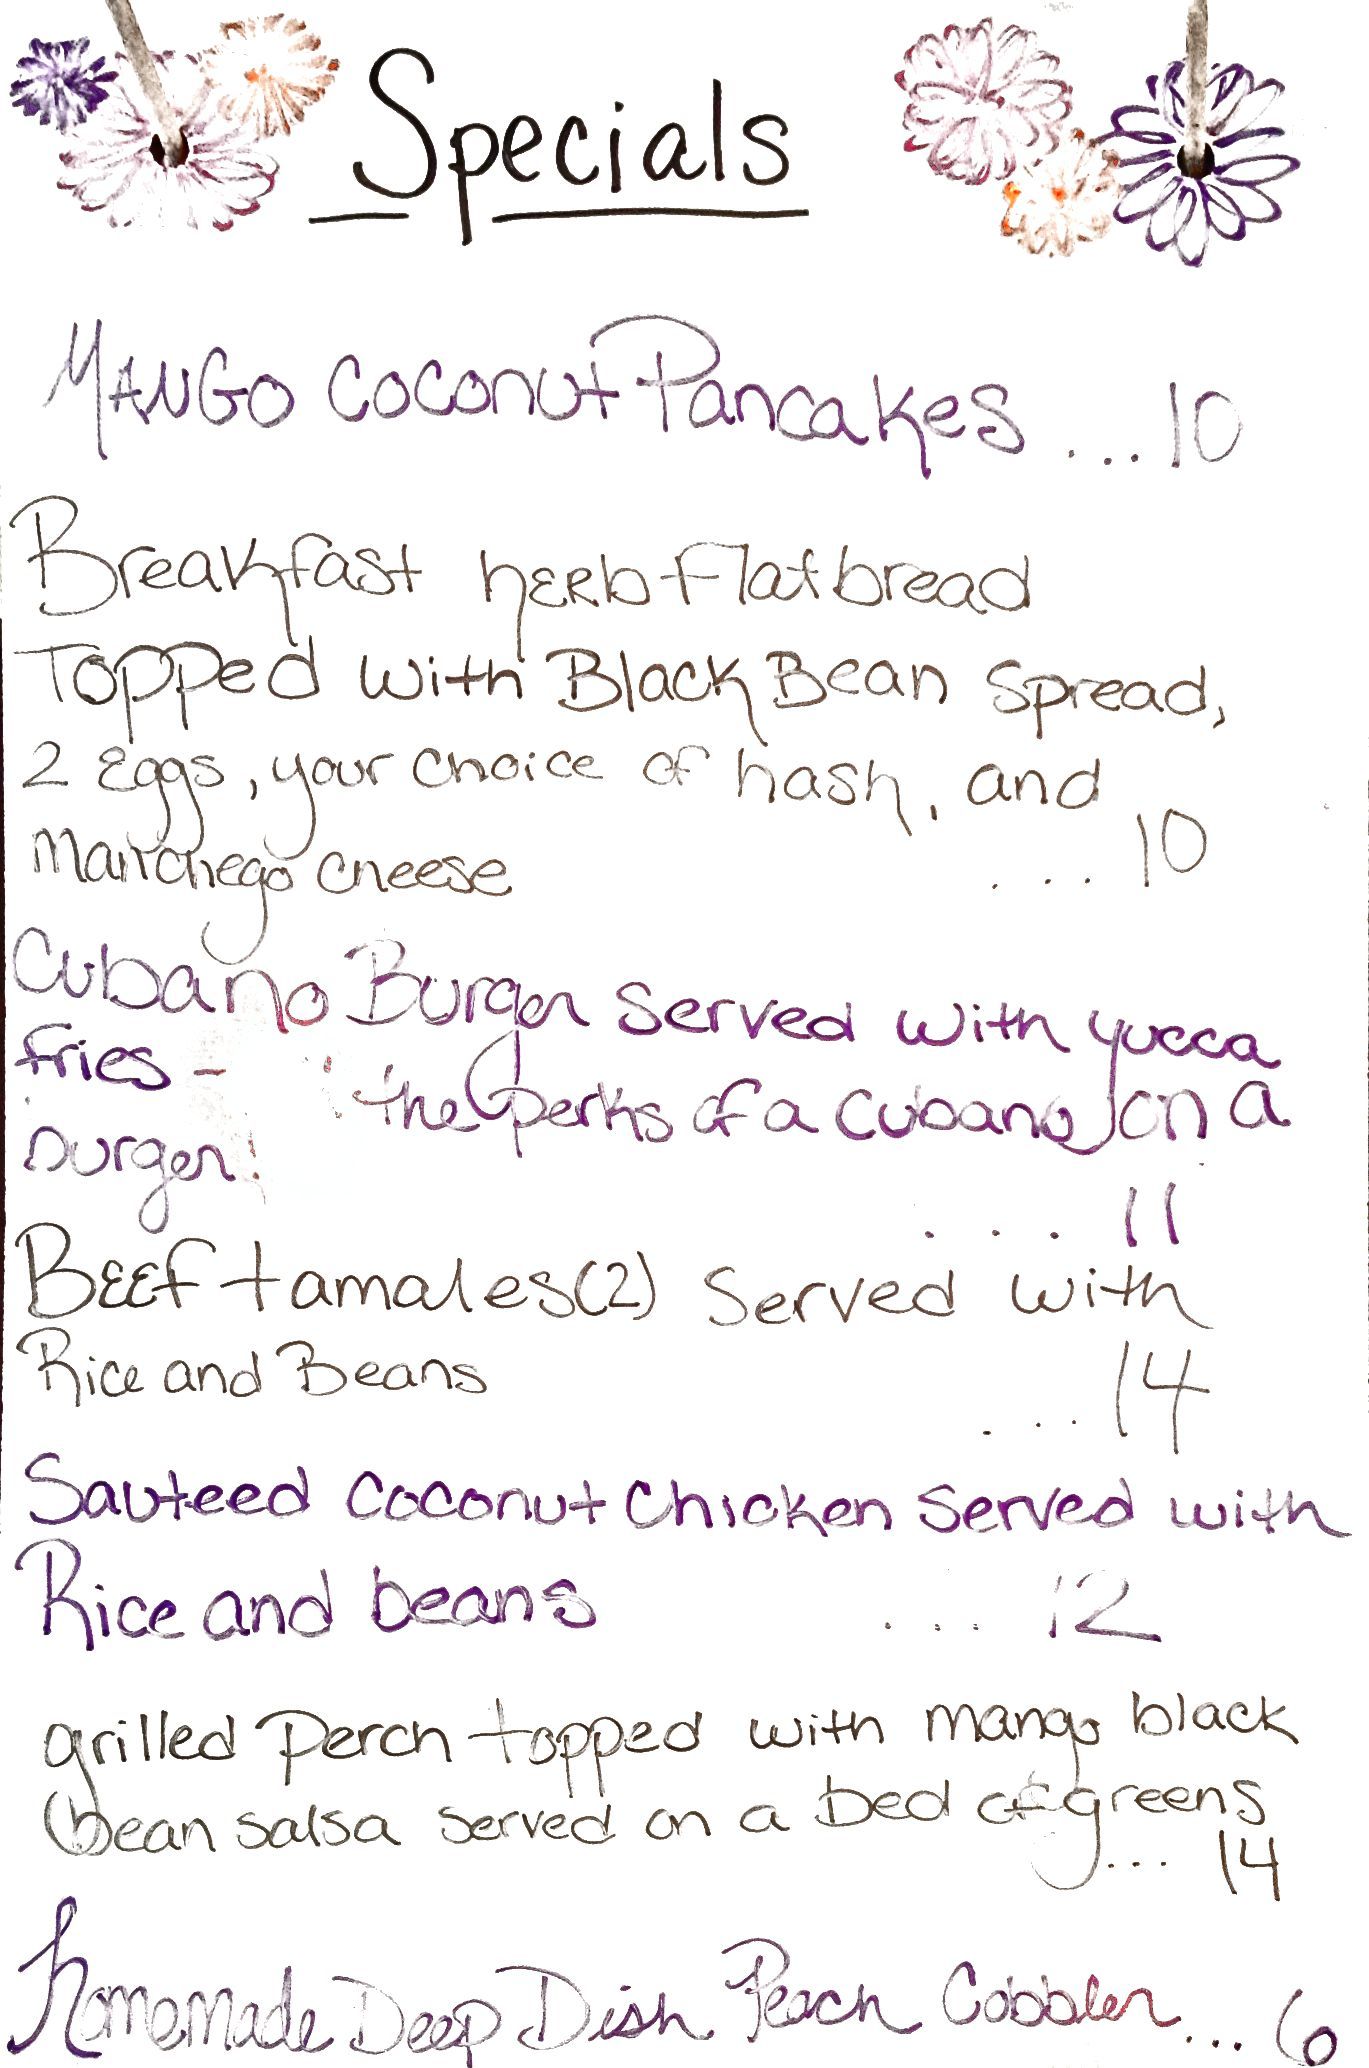 Specials
Mango Coconut Pancakes ... 10
Breakfast herb flatbread
Topped with Black Bean Spread,
2 Eggs, your choice of hash, and
Manchego cheese ... 10
Cubano Burger Served with yucca
fries - the perks of a Cubano on a
burger!
.... 11
Beef tamales (2) Served with
Rice and Beans
... 14
Sauteed Coconut Chicken Served with
Rice and beans ... 12
grilled Perch topped with mango black
bean salsa served on a bed of greens
... 14
Homemade Deep Dish Peach Cobbler ... 6